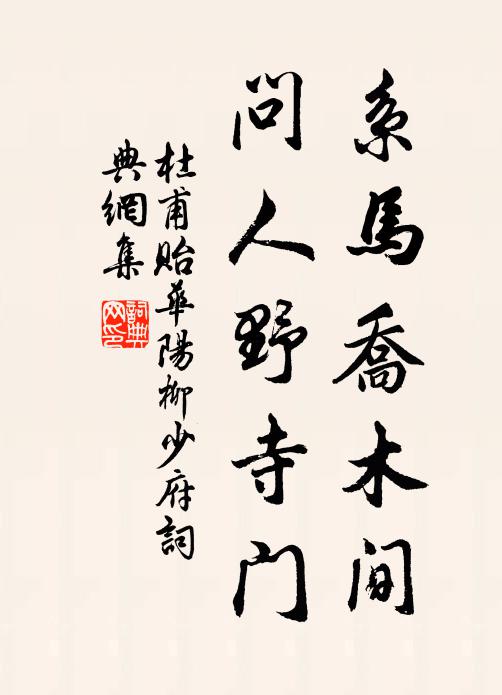 系馬喬木间
问人野寺门
杜甫貽華陽柳少府詞
典網集
詞典
网印